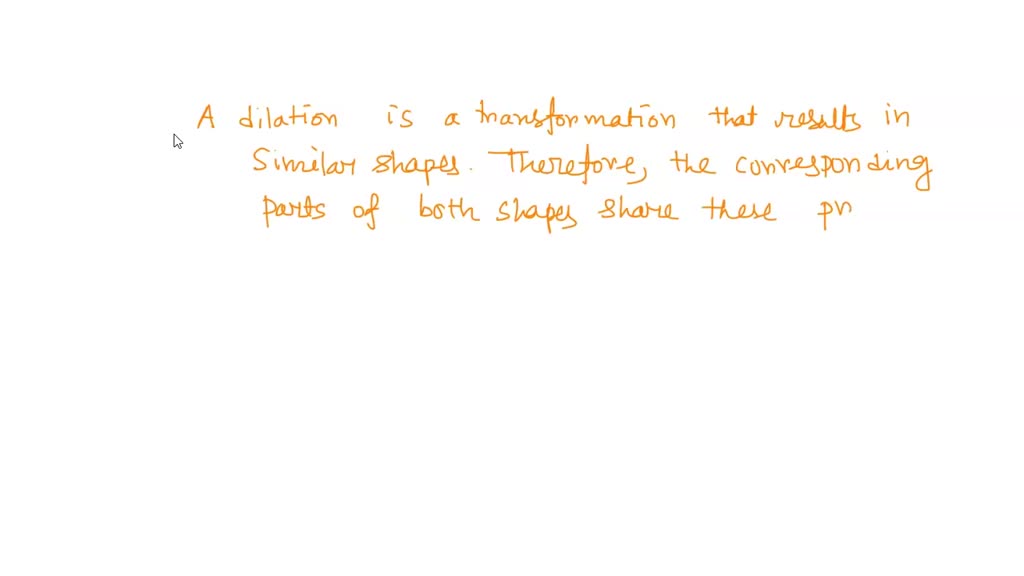 A dilation is a transformation that results in
Similar shapes. Therefore, the corresponding
parts of both shapes share these pr